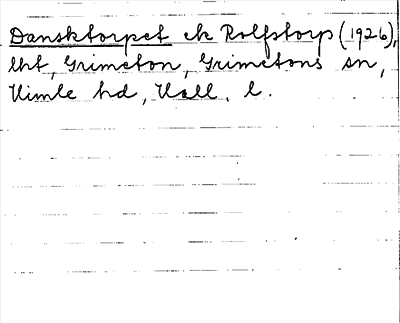 Dansktorpet ek Rolfstorp (1926),
lht, Grimeton, Grimetons sn,
Himle hd, Hall. l.